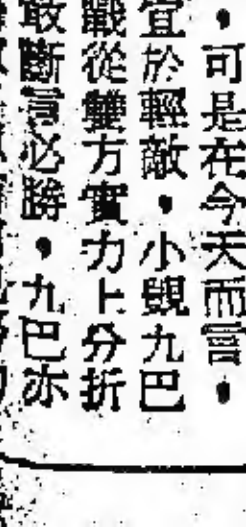 ，可是在今天而言，
宜於輕敵，小覷九巴
戰從雙方實力上分折
敢斷言必勝，九巴亦